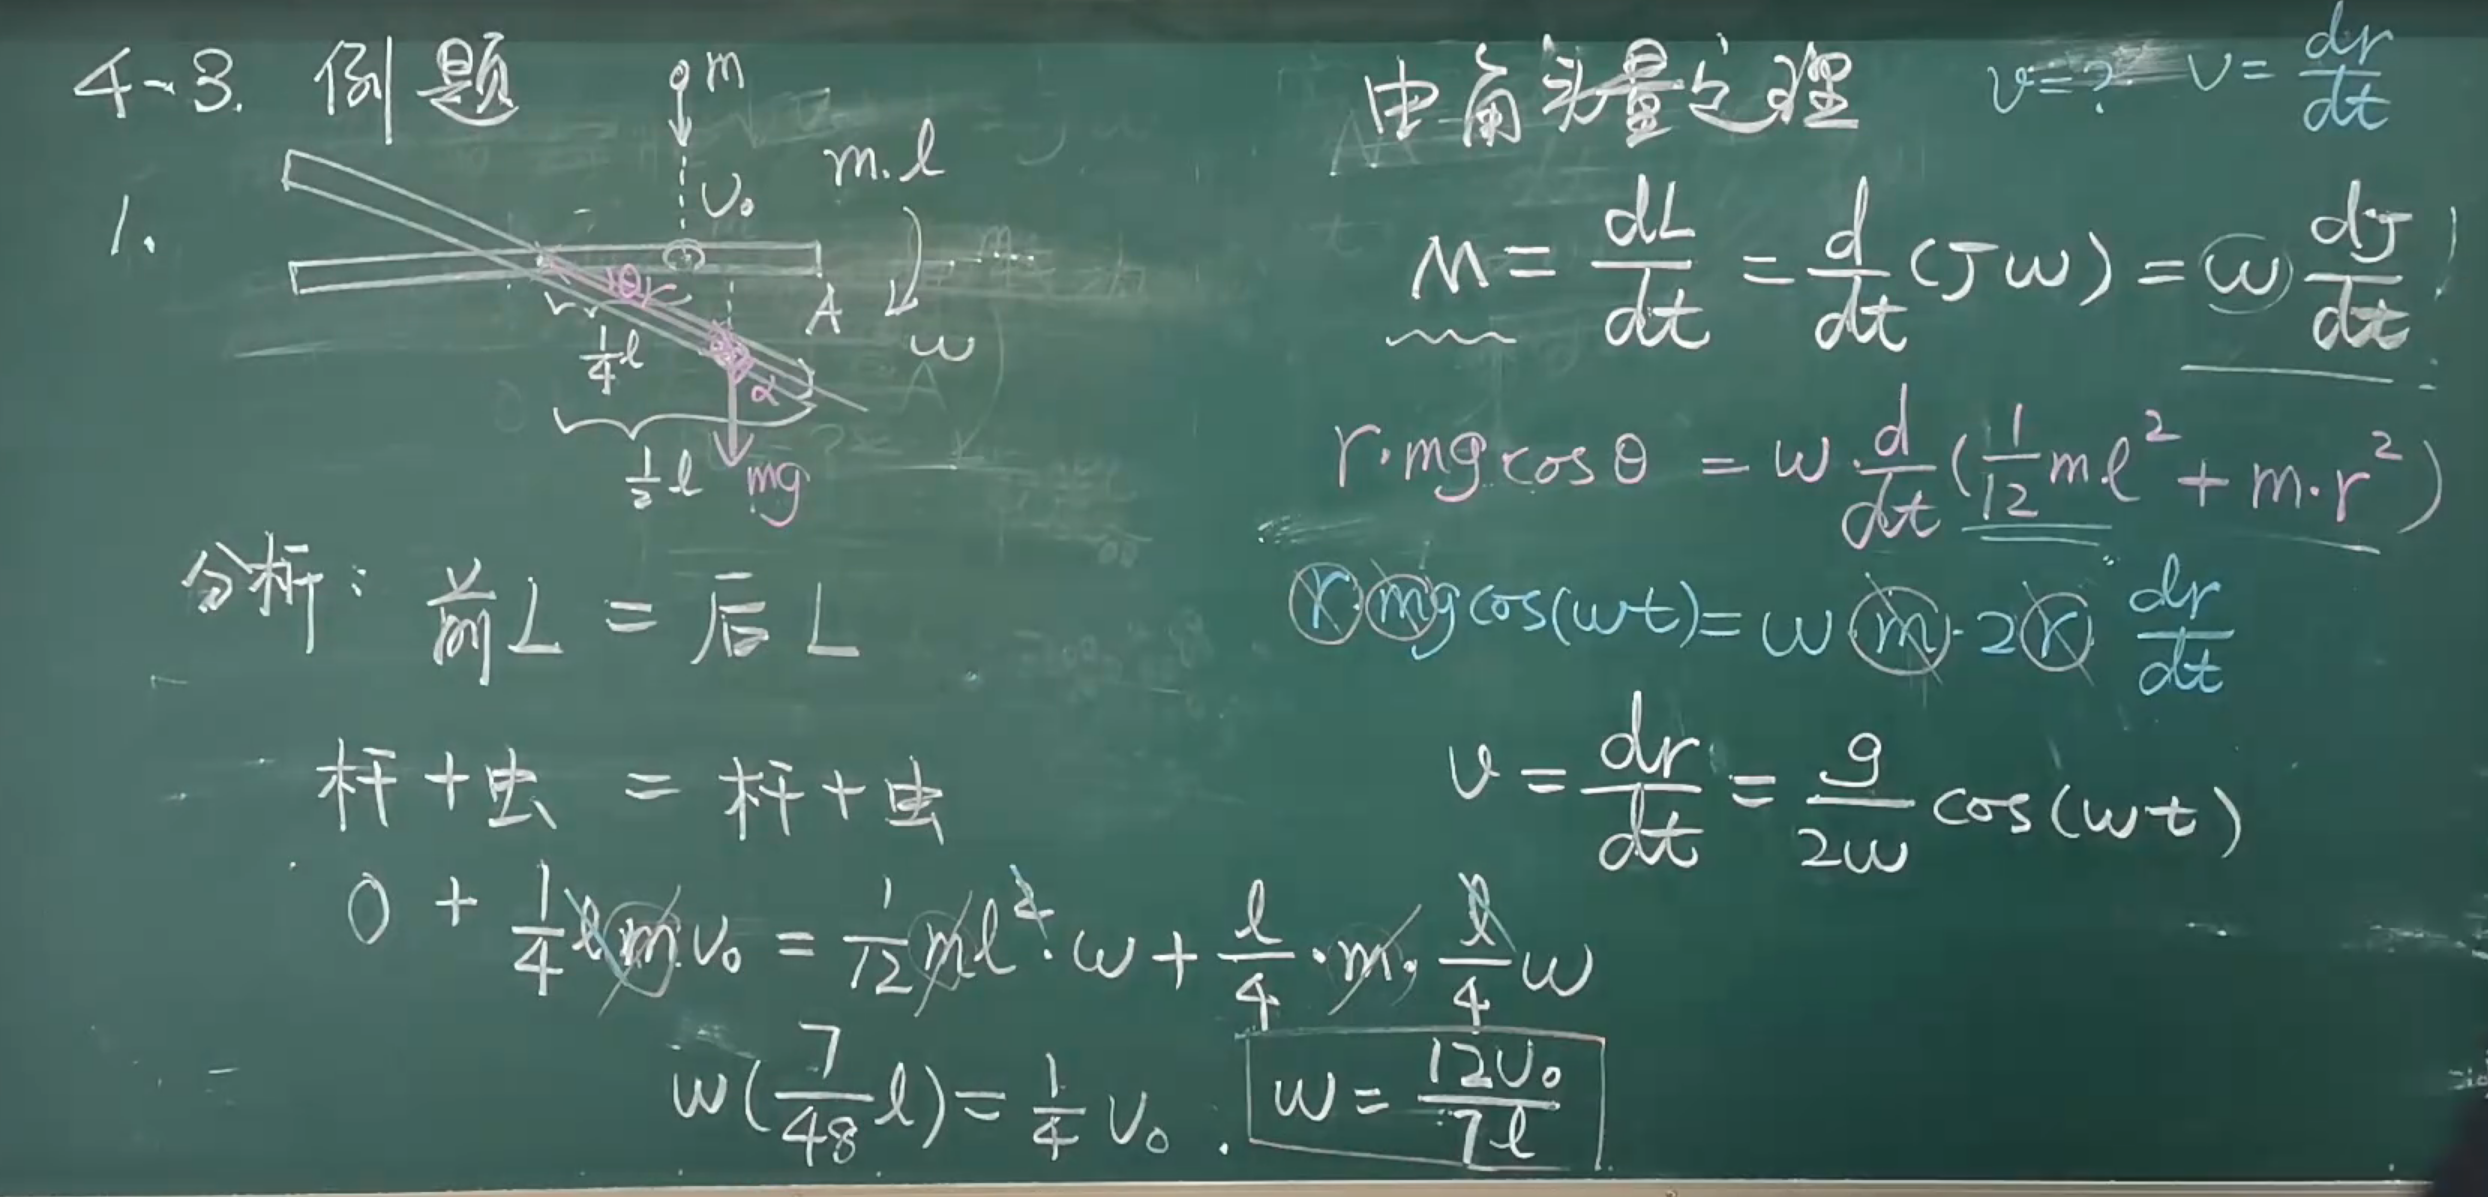 4-3. 例题
1.
m
v₀
m.l
θ r
A
ω
1/4 l
α
1/2 l
mg
分析: 前L = 后L
杆+虫 = 杆+虫
0 + 1/4 l m v₀ = 1/12 m l² · ω + l/4 · m · l/4 ω
ω(7/48 l) = 1/4 v₀ . ω = 12v₀/7l
由角动量定理 v=? v = dr/dt
M = dL/dt = d/dt (Jω) = ω dJ/dt
r·mg cosθ = ω · d/dt (1/12 ml² + m·r²)
r·mg cos(ωt) = ω m·2r dr/dt
v = dr/dt = g/2ω cos(ωt)